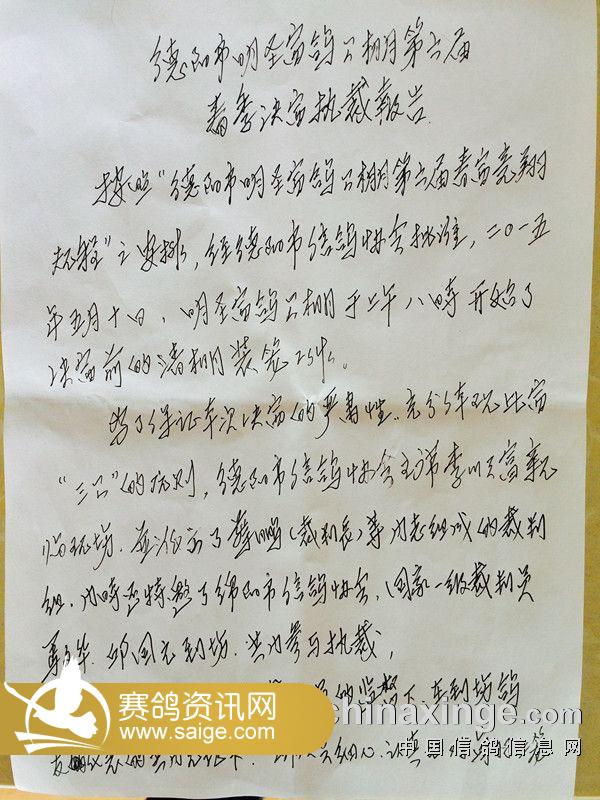 德阳市明圣赛鸽公棚第六届
春季决赛执裁报告
按照“德阳市明圣赛鸽公棚第六届春赛竞翔
规程”之安排，经德阳市信鸽协会批准，二〇一五
年五月十日，明圣赛鸽公棚于上午八时开始了
决赛前的清棚装笼工作。
为了保证本次决赛的严肃性、充分体现比赛
“三公”的原则，德阳市信鸽协会主席李川富亲
临现场．并派出了薛明（裁判长）等同志组成的裁判
组．同时还特邀了绵阳市信鸽协会，国家一级裁判员
华．邱国元到场．共同参与执裁，
的监督下 在到场鸽
友 代表的共同见证下． 细心、认真
赛鸽资讯网
www.saige.com
chinaxinge.com
中国信鸽信息网